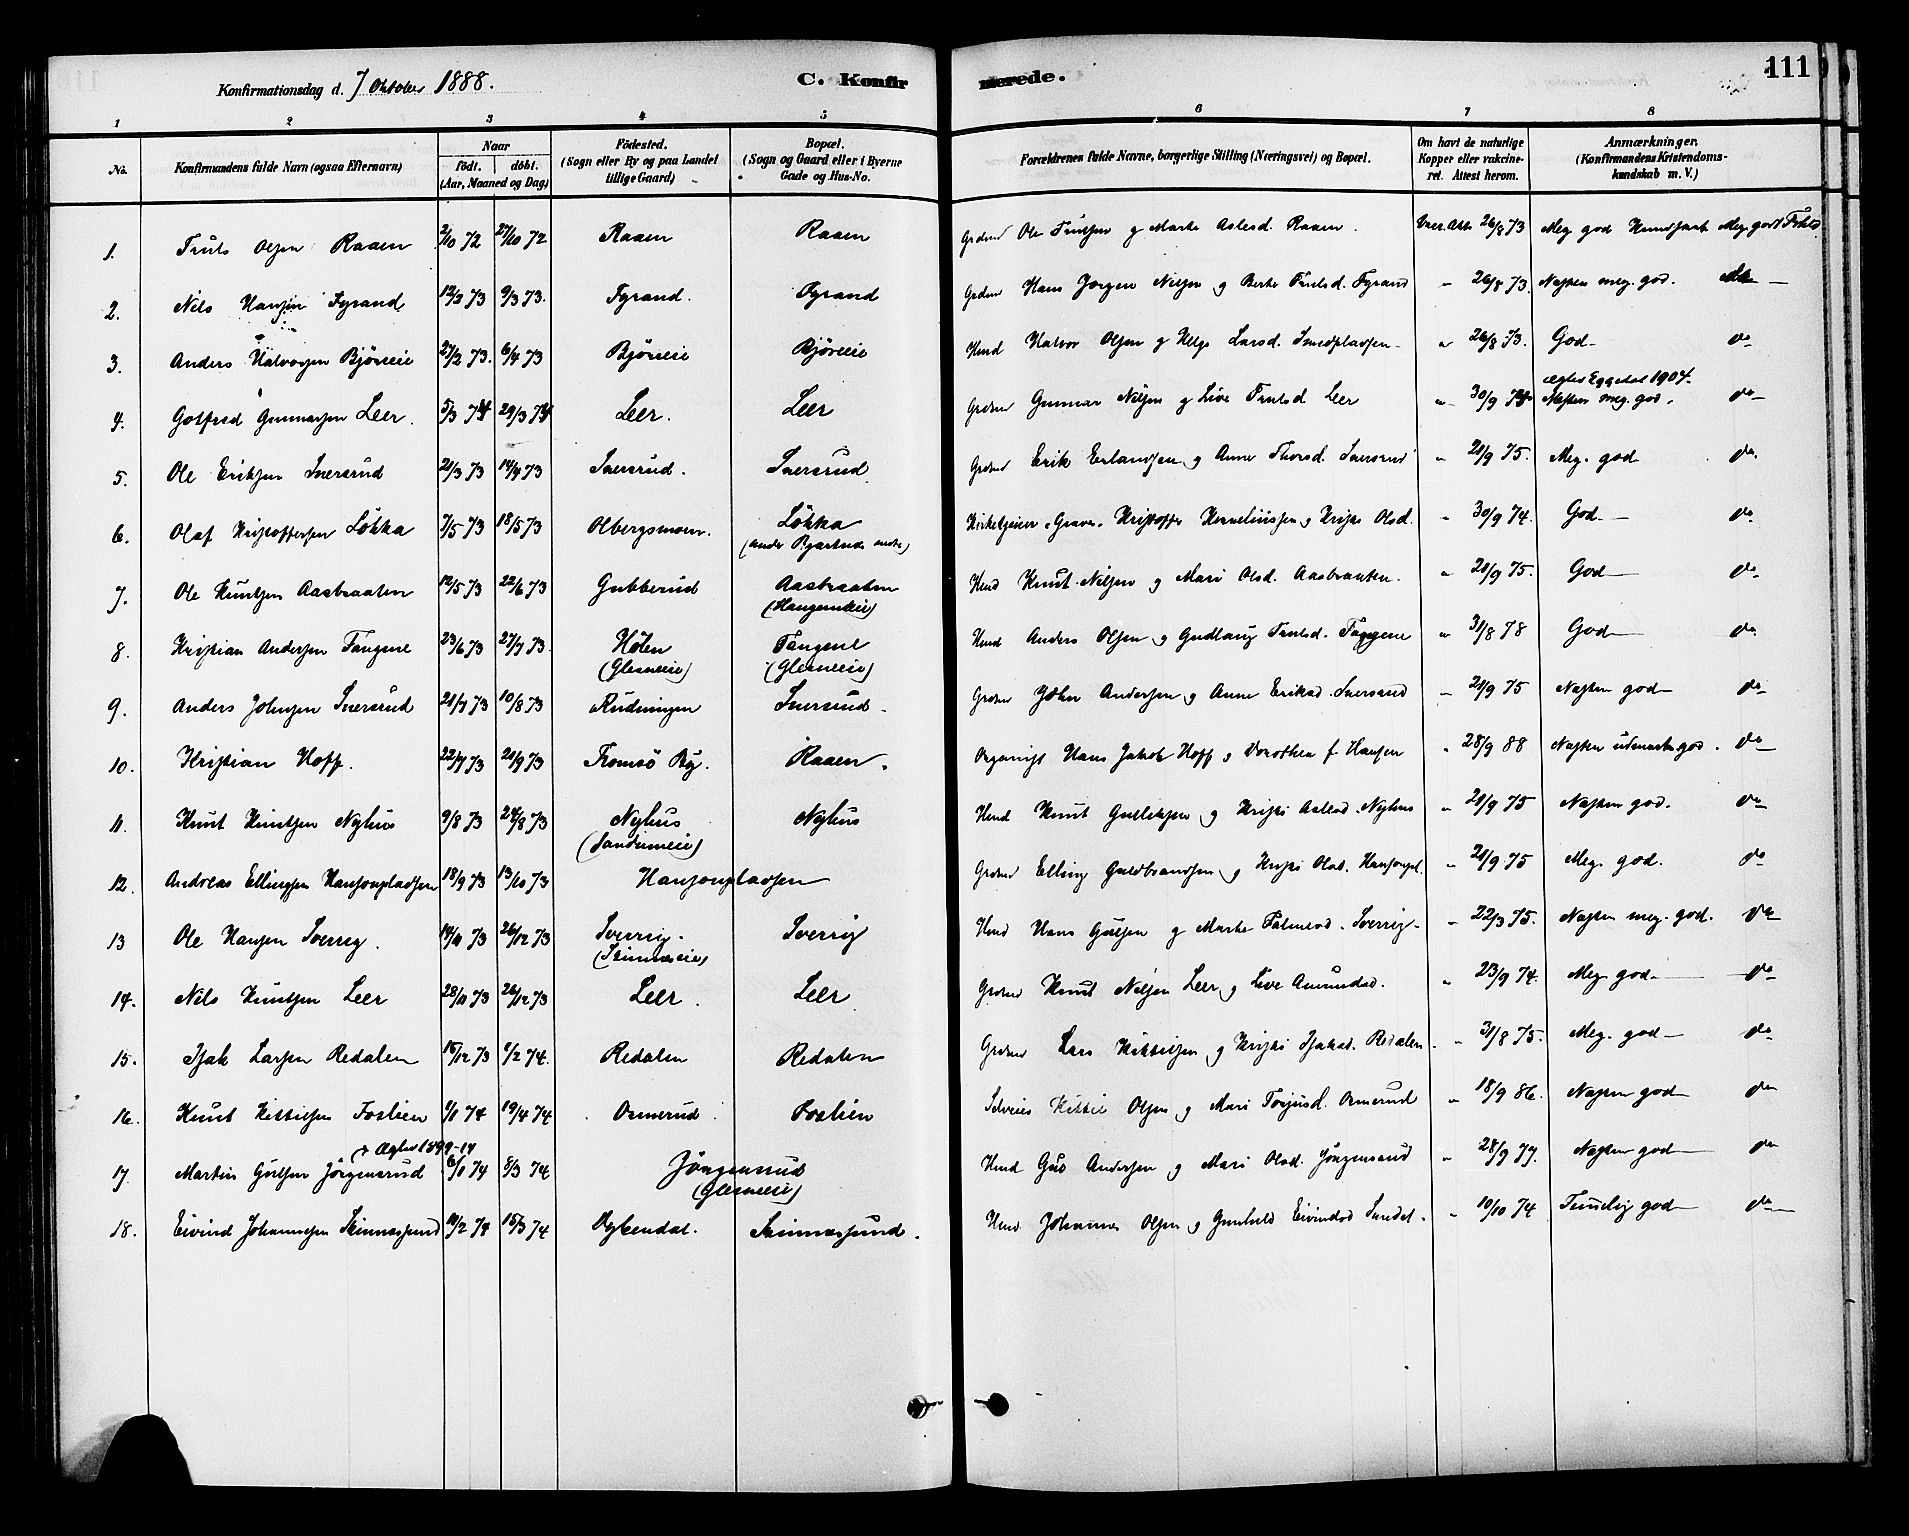 Konfirmationsdag d. 7 Oktober 1888.
C. Konfirmerede.
111
1 2 3 4 5 6 7 8
No.
Konfirmandens fulde Navn (ogsaa Efternavn)
Naar
födt. döbt.
(Aar, Maaned og Dag)
Födested.
(Sogn eller By og paa Landet
tillige Gaard)
Bopæl.
(Sogn og Gaard eller i Byerne
Gade og Hus-No.
Forældrenes fulde Navne, borgerlige Stilling (Næringsvei) og Bopæl.
Om havt de naturlige
Kopper eller vakcine-
ret. Attest herom.
Anmærkninger.
(Konfirmandens Kristendoms-
kundskab m. V.)
1. Truls Olsen Raaen 2/10 72 27/10 72 Raaen Raaen Grdmd Ole Trulsen og Marte Aslesd. Raaen. Vacc. Att. 26/8 73 Meg. god Kundskab Meg. god Flid
2. Nils Hansen Fyrand 12/2 73 9/3 73. Fyrand. Fyrand Grdmd Hans Jörgen Nilsen og Berte Trulsd. Fyrand " 26/8 73. Næsten meg. god. —
3. Anders Halvorsen Björeeie 27/2 73. 6/4 73 Björeeie Björeeie Hmd Halvor Olsen og Helge Larsd. Smedpladsen " 26/8 73. God do
4. Gotfred Gunnarsen Leer. 5/3 74 29/3 74 Leer. Leer Grdmd Gunnar Nilsen og Live Trulsd Leer " 30/9 Næsten meg. god. do
ægtev Eggedal 1904.
5. Ole Eriksen Snersrud 21/3 73 14/4 73 Snersrud. Snersrud Grdmd Erik Erlandsen og Anne Thorsd. Snersrud " 21/9 75. Meg. god do
6. Olaf Kristoffersen Lökka 7/5 73 18/5 73 Olbergsmoen. Lökka Kirketjener & Graver Kristoffer Kornelinssen og Kristi Olsd. " 30/9 74. God do
7. Ole Knutsen Aasbraaten 12/5 73 22/6 73 Gubberud Aasbraaten Hmd Knut Nilsen og Mari Olsd. Aasbraaten. " 21/9 75. God do
8. Kristian Andersen Tangene 23/6 73 27/7 73. Hölen Tangene Hmd Anders Olsen og Gudlaug Trulsd. Tangene " 31/8 78 God do
(Glesneeie) (Glesneeie)
9. Anders Johnsen Snersrud 21/7 73 10/8 73 Rudningen Snersrud Grdmd John Andersen og Anne Eriksd. Snersrud " 21/9 75 Næsten god do
10. Kristian Hoff. 22/7 73 21/9 73 Tromsö By. Raaen. Organist Hans Jakob Hoff og Dorothea f. Hansen " 28/9 88 Næsten udmærket god. do
11. Knut Knutsen Nyhus 9/8 73 24/8 73 Nyhus Nyhus Hmd Knut Gulliksen og Kristi Aslesd. Nyhus " 21/9 75 Næsten god. do
(Sandumeie)
12. Andreas Ellingsen Hansonpladsen 18/9 73 13/10 73 Hansonpladsen Grdmd Elling Guldbrandsen og Kristi Olsd. Hansonpl. " 21/9 75 Meg. god. do
13 Ole Hansen Sverrig. 14/11 73 26/12 73 Sverrig. Sverrig Hmd Hans Gulsen og Marte Sverrig " 22/3 75. Næsten meg. god. do
14. Nils Knutsen Leer 28/11 73 26/12 73 Leer. Leer Grdmd Knut Nilsen Leer og Live Amundsd. " 23/9 74. Meg. god do
15. Isak Larsen Redalen 15/12 73 1/2 74. Redalen Redalen Grdmd Lars Kittilsen og Kristi Isaksd. Redalen. " 31/8 75. Meg. god do
16. Knut Kittilsen Foslien 1/1 74 19/4 74 Ormerud Foslien Selveier Kittil Olsen og Mari Torjusd. Ormerud " 18/9 86. Næsten god do
Ægtev 1899-14
17. Martin Gulsen Jörgensrud 6/1 74 8/3 74 Jörgensrud Hmd Gul Andersen og Mari Olsd. Jörgensrud " 28/9 77. Næsten god do
(Glesneeie)
18. Eivind Johannesen Skinnessund 10/2 74 15/3 74 Skinnessund. Hmd Johannes Olsen og Gunhild Eivindsd Sundet. " 10/10 74 Temmelig god do